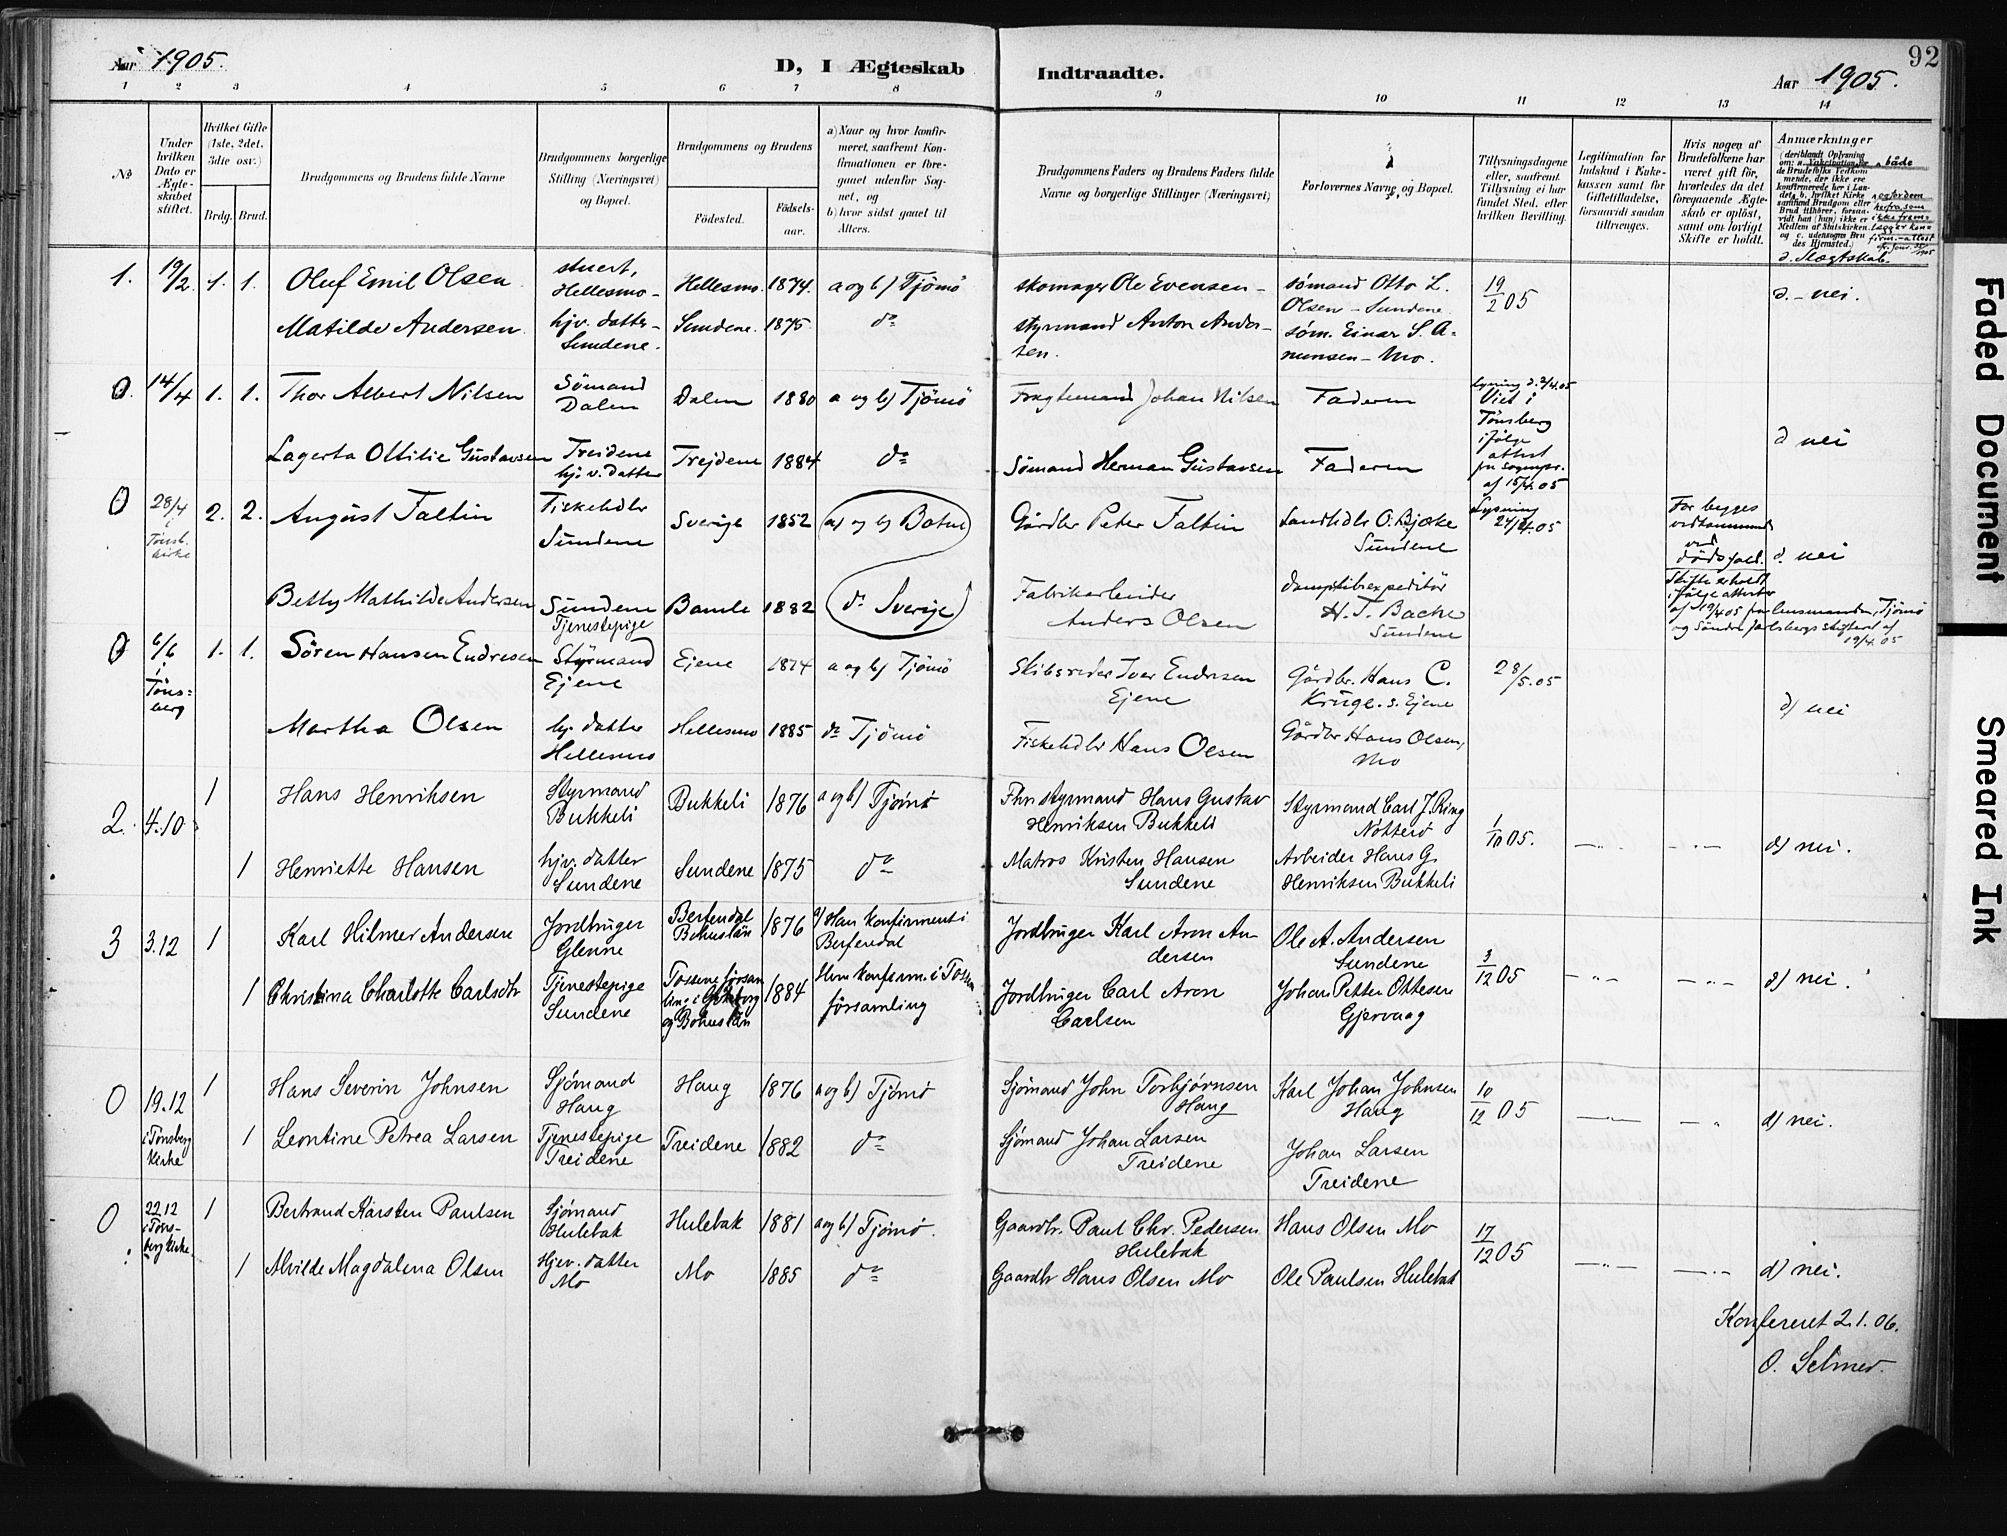 Aar 1905.
D, I Ægteskab Indtraadte.
Aar 1905.
92
1 2 3 4 5 6 7 8 9 10 11 12 13 14
No
Under hvilken Dato er Ægteskabet stiftet.
Hvilket Gifte (1ste, 2det, 3die osv.)
Brdg. Brud.
Brudgommens og Brudens fulde Navne
Brudgommens borgerlige Stilling (Næringsvei) og Bopæl.
Brudgommens og Brudens
Fødested.
Fødselsaar.
a) Naar og hvor konfirmeret, saafremt Konfirmationen er foregaaet udenfor Sognet, og
b) hvor sidst gaaet til Alters.
Brudgommens Faders og Brudens Faders fulde Navne og borgerlige Stillinger (Næringsvei)
Forlovernes Navne og Bopæl.
Tillysningsdagene eller, saafremt Tillysning ei har fundet Sted, efter hvilken Bevilling.
Legitimation for Indskud i Enkekassen samt for Giftetilladelse, forsaavidt saadan tiltrænges.
Hvis nogen af Brudefolkene har været gift før, hvorledes da det foregaaende Ægteskab er opløst, samt om lovligt Skifte er holdt.
Anmærkninger
d. Slægtskab.
1. 19/2 1. 1. Oluf Emil Olsen
stuert, Hellesmo-
Hellesmo. 1874. a og b) Tjømø
skomager Ole Evensen -
sømand Otto L. Olsen - Sundene
19/2 05
d. - nei.
Matilde Andersen.
hjv. datter - Sundene.
Sundene. 1875. do
styrmand Anton Andersen.
søm. Einar S. Anunsen - Mo.
0. 14/4 1. 1. Thor Albert Nilsen
Sömand Dalen
Dalen 1880 a og b) Tjömö
Fragtemand Johan Nilsen
Faderen
Lysning d. 2/4.05
Viet i Tönsberg ifölge attest fra Sognepr. af 15/4.05
Lagerta Ottilie Gustavsen
Treidene hj. v. datter
Trejdene 1884 do
Sömand Herman Gustavsen
Faderen
d nei
0 28/4 i Tönsb. kirke 2. 2. August Faltin
Fiskehdlr Sundene
Sverige 1852 a) og b) Botne
Gårdbr Peter Faltin
Landhdlr O. Bjerke Sundene
Lysning 24/4.05
For begges vedkommende ved dödsfall.
d. nei
Betty Mathilde Andersen
Sundene Tjenestepige
Bamle 1882 do Sverige
Fabrikarbeider Anders Olsen
Dampskibsexpeditör H. T. Bache Sundene
Skifte er holdt ifölge attester af 19/4 05 fra lensmanden, Tjömö og Söndre Jarlsbergs skifteret af 19/4.05
0 6/6 i Tönsberg 1. 1. Sören Hansen Endresen
Styrmand Ejene
Ejene 1874 a og b) Tjömö
Skibsreder Iver Endresen Ejene
Gårdbr. Hans C. Kruge. s. Ejene
28/5.05
d) nei
Martha Olsen
hj. datter Hellesmo
Hellesmo 1885 do Tjömö
Fiskehdlr Hans Olsen
Gårdbr Hans Olsen, Mo
2. 4.10 1 Hans Henriksen
Styrmand Bukkeli
Bukkeli 1876 a og b) Tjømø
Fhn styrmand Hans Gustav Henriksen Bukkeli
Styrmand Carl J. Ring Nøtterø
1/10 05.
d) nei.
1 Henriette Hansen
hjv. datter Sundene
Sundene 1875 do
Matros Kristen Hansen Sundene
Arbeider Hans G. Henriksen Bukkeli
3 3.12 1 Karl Hilmer Andersen
Jordbruger Glenne
Berfendal Bohuslän 1876 a) Han konfirmert i Berfendal
Jordbruger Karl Aron Andersen
Ole A. Andersen Sundene
3/12 05
d) nei.
1 Christina Charlotte Carlsdtr
Tjenestepige Sundene
Tossene församling i Göteborg og Bohuslän 1884 Hun konfirm. i Tossene församling
Jordbruger Carl Aron Carlsen
Johan Petter Ottesen Gjervaag
0 19.12 i Tønsberg Kirke 1 Hans Severin Johnsen
Sjømand Haug
Haug 1876 a og b) Tjømø
Sjømand John Torbjørnsen Haug
Karl Johan Johnsen Haug
10/12 05
d) nei.
1 Leontine Petrea Larsen
Tjenestepige Treidene
Treidene 1882 do
Sjømand Johan Larsen Treidene
Johan Larsen Treidene
0 22.12 i Tønsberg Kirke 1 Bertrand Karsten Paulsen
Sjømand Hulebak
Hulebak 1881 a og b) Tjømø.
Gaardbr. Paul Chr. Pedersen Hulebak
Hans Olsen Mo
17/12 05
1 Alvilde Magdalena Olsen
Hjev. datter Mo
Mo 1885 do
Gaardbr Hans Olsen Mo
Ole Paulsen Hulebak
d) nei.
Konfereret 2.1.06.
O. Selmer.
Faded Document
Smeared Ink